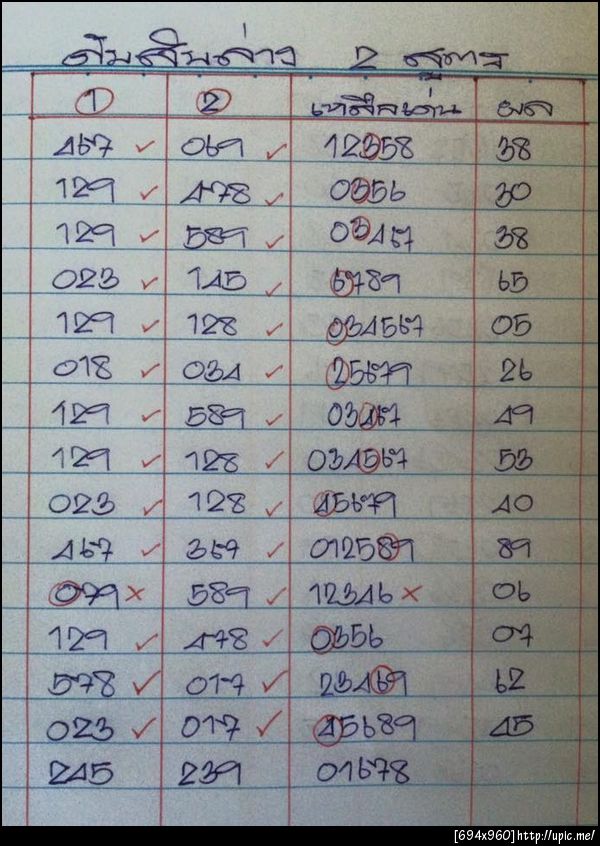 ดับสิบล่าง 2 สูตร
① ② เหลือเด่น ผล
467 ✓ 069 ✓ 12358 38
129 ✓ 478 ✓ 0356 30
129 ✓ 589 ✓ 03467 38
023 ✓ 145 ✓ 6789 65
129 ✓ 128 ✓ 034567 05
018 ✓ 034 ✓ 25679 26
129 ✓ 589 ✓ 03467 49
129 ✓ 128 ✓ 034567 53
023 ✓ 128 ✓ 45679 40
467 ✓ 367 ✓ 012589 89
079 × 589 ✓ 12346 × 06
129 ✓ 478 ✓ 0356 07
578 ✓ 017 ✓ 23469 62
023 ✓ 017 ✓ 45689 45
245 239 01678
[694x960] http://upic.me/